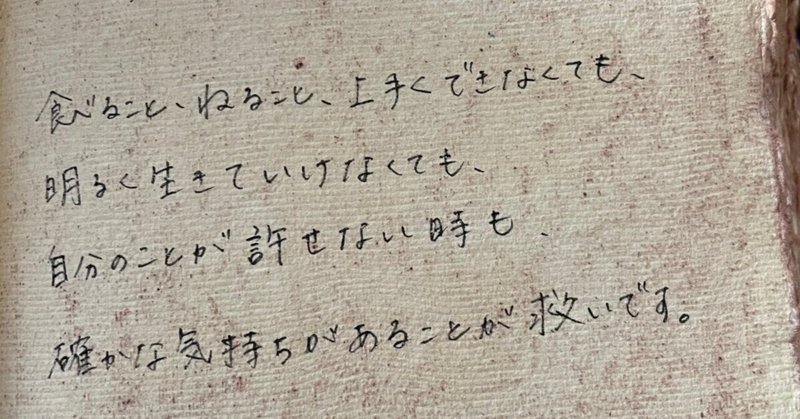 食べること、ねること、上手くできなくても、
明るく生きていけなくても、
自分のことが許せない時も、
確かな気持ちがあることが救いです。